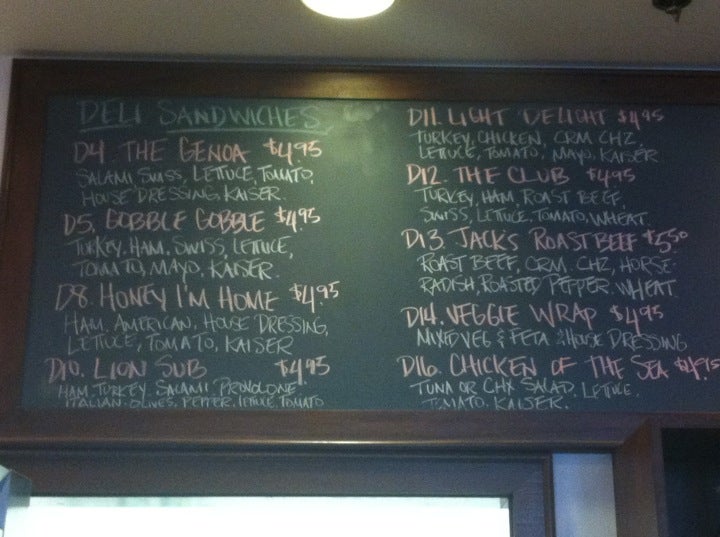 DELI SANDWICHES
D4. THE GENOA $4.95
SALAMI SWISS, LETTUCE, TOMATO,
HOUSE DRESSING, KAISER
D5. GOBBLE GOBBLE $4.95
TURKEY, HAM, SWISS, LETTUCE,
TOMATO, MAYO, KAISER
D8. HONEY I'M HOME $4.95
HAM, AMERICAN, HOUSE DRESSING,
LETTUCE, TOMATO, KAISER
D10. LION SUB $4.95
HAM, TURKEY, SALAMI, PROVOLONE
ITALIAN, OLIVES, PEPPER, LETTUCE, TOMATO
D11. LIGHT DELIGHT $4.95
TURKEY, CHICKEN, CRM CHZ,
LETTUCE, TOMATO, MAYO, KAISER
D12. THE CLUB $4.95
TURKEY, HAM, ROAST BEEF,
SWISS, LETTUCE, TOMATO, WHEAT.
D13. JACK'S ROAST BEEF $5.50
ROAST BEEF, CRM. CHZ, HORSE-
RADISH, ROASTED PEPPER. WHEAT
D14. VEGGIE WRAP $4.95
MIXED VEG & FETA & HOUSE DRESSING
D16. CHICKEN OF THE SEA $4.95
TUNA OR CHX SALAD, LETTUCE,
TOMATO, KAISER.